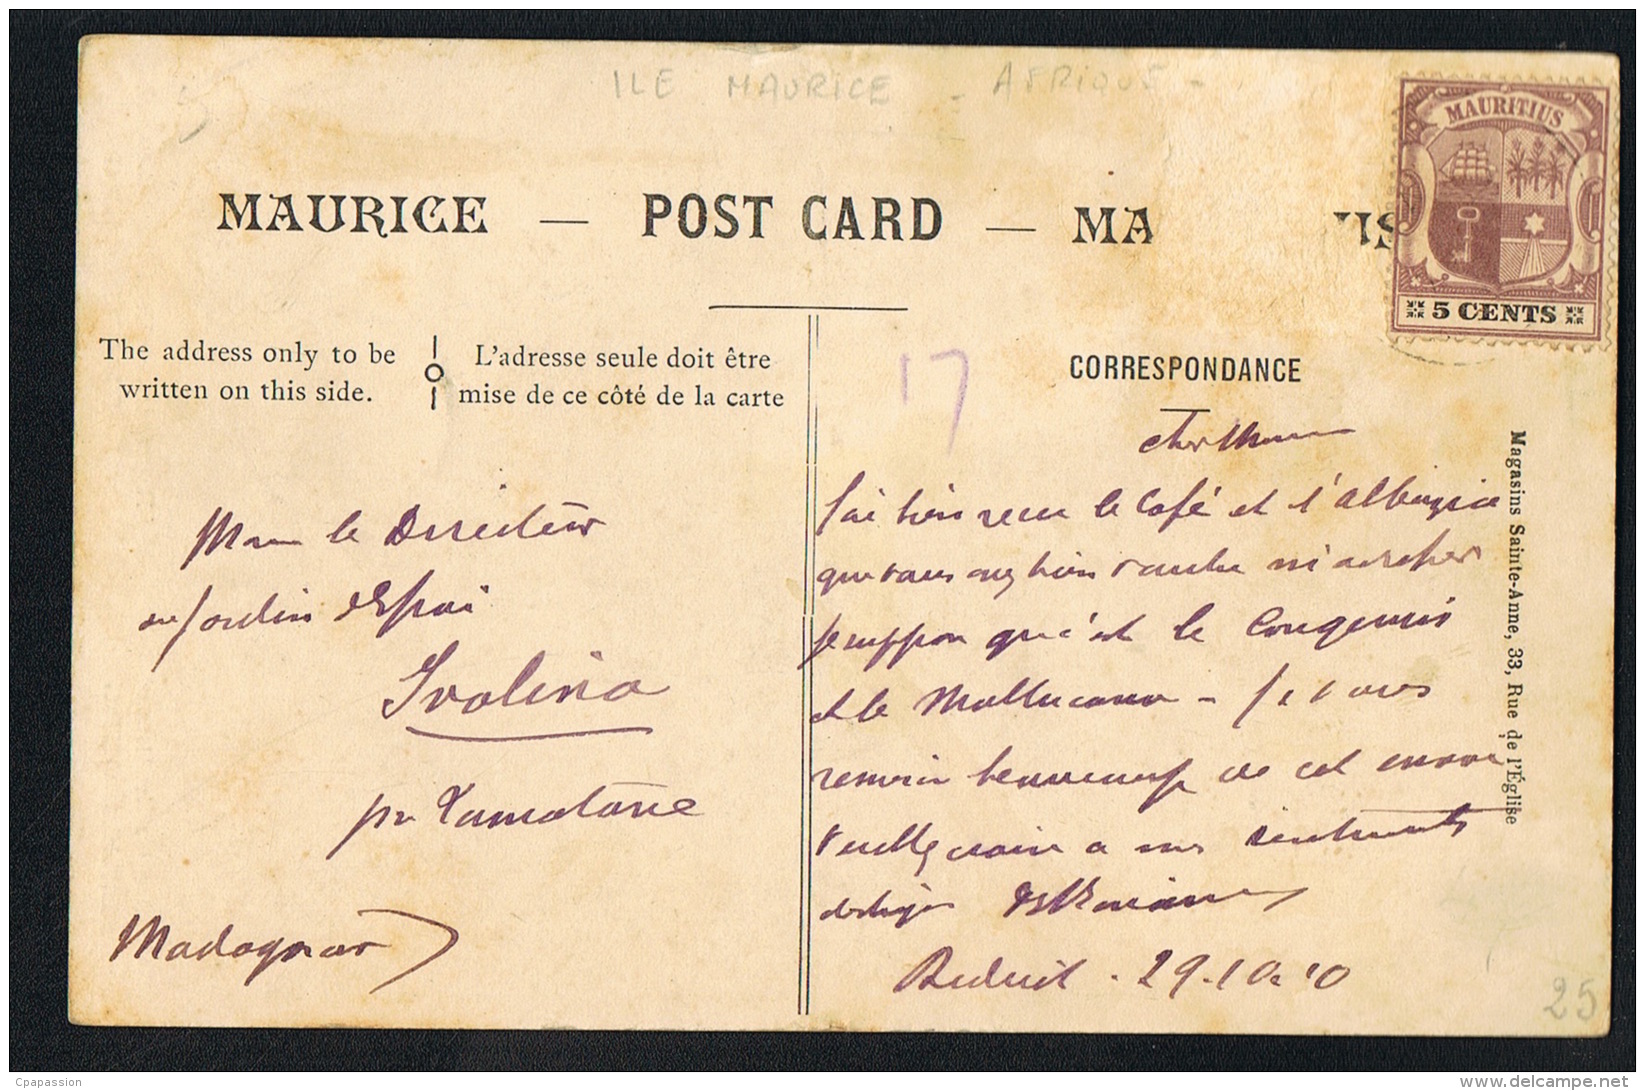 ILE MAURICE - AFRIQUE -
MAURICE — POST CARD — MA TIUS
MAURITIUS
5 CENTS
The address only to be
written on this side.
L'adresse seule doit être
mise de ce côté de la carte
17
CORRESPONDANCE
Magasins Sainte-Anne, 33, Rue de l'Église
Monsr le Directeur
au Jardin d'Essai
Ivolina
par Tamatave
Madagascar
Cher
J'ai bien reçu le café et l'albizzia
que vous avez bien voulu m'adresser
Je suppose que c'est le Congensis
et le Moluccana - Je vous
remercie beaucoup de cet envoi
Veuillez croire à mes sentiments
distingués
Reduit - 29.10.10
25
Cpapassion
www.delcampe.net